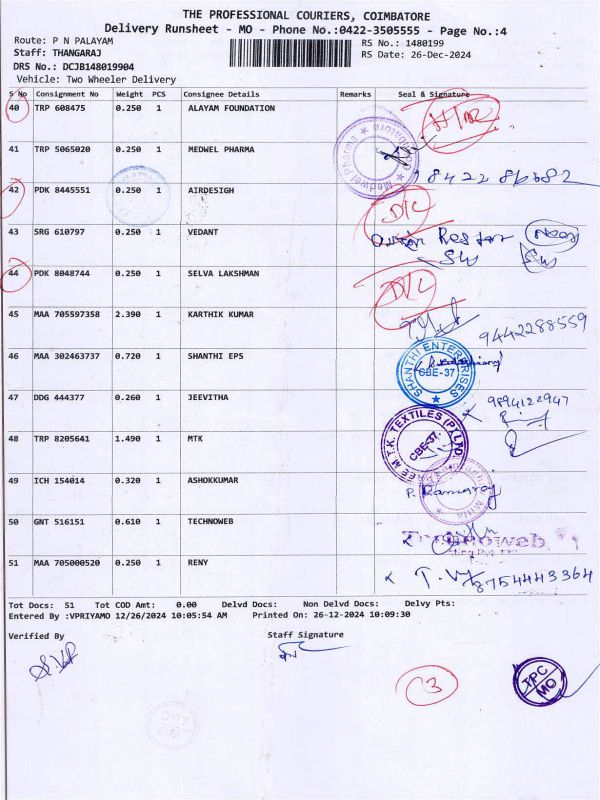 THE PROFESSIONAL COURIERS, COIMBATORE
Delivery Runsheet - MO - Phone No.:0422-3505555 - Page No.:4
Route: P N PALAYAM
RS No.: 1480199
Staff: THANGARAJ
RS Date: 26-Dec-2024
DRS No.: DCJB148019904
Vehicle: Two Wheeler Delivery
S No Consignment No Weight PCS Consignee Details Remarks Seal & Signature
40 TRP 608475 0.250 1 ALAYAM FOUNDATION
41 TRP 5065020 0.250 1 MEDWEL PHARMA
Medwel Pharma
42 PDK 8445551 0.250 1 AIRDESIGH D/L
43 SRG 610797 0.250 1 VEDANT
44 PDK 8048744 0.250 1 SELVA LAKSHMAN D/L
45 MAA 705597358 2.390 1 KARTHIK KUMAR
9442288559
46 MAA 302463737 0.720 1 SHANTHI EPS
SHANTHI ENTERPRISES CBE-37
47 DDG 444377 0.260 1 JEEVITHA 9894122947
48 TRP 8205641 1.490 1 MTK
M.T.K. TEXTILES (P) LTD CBE-37
49 ICH 154014 0.320 1 ASHOKKUMAR
P. Ramaraj
50 GNT 516151 0.610 1 TECHNOWEB
Technoweb
51 MAA 705000520 0.250 1 RENY
8754443364
Tot Docs: 51 Tot COD Amt: 0.00 Delvd Docs: Non Delvd Docs: Delvy Pts:
Entered By :VPRIYAMO 12/26/2024 10:05:54 AM Printed On: 26-12-2024 10:09:30
Verified By
Staff Signature
S.VP
03
TPC
MO